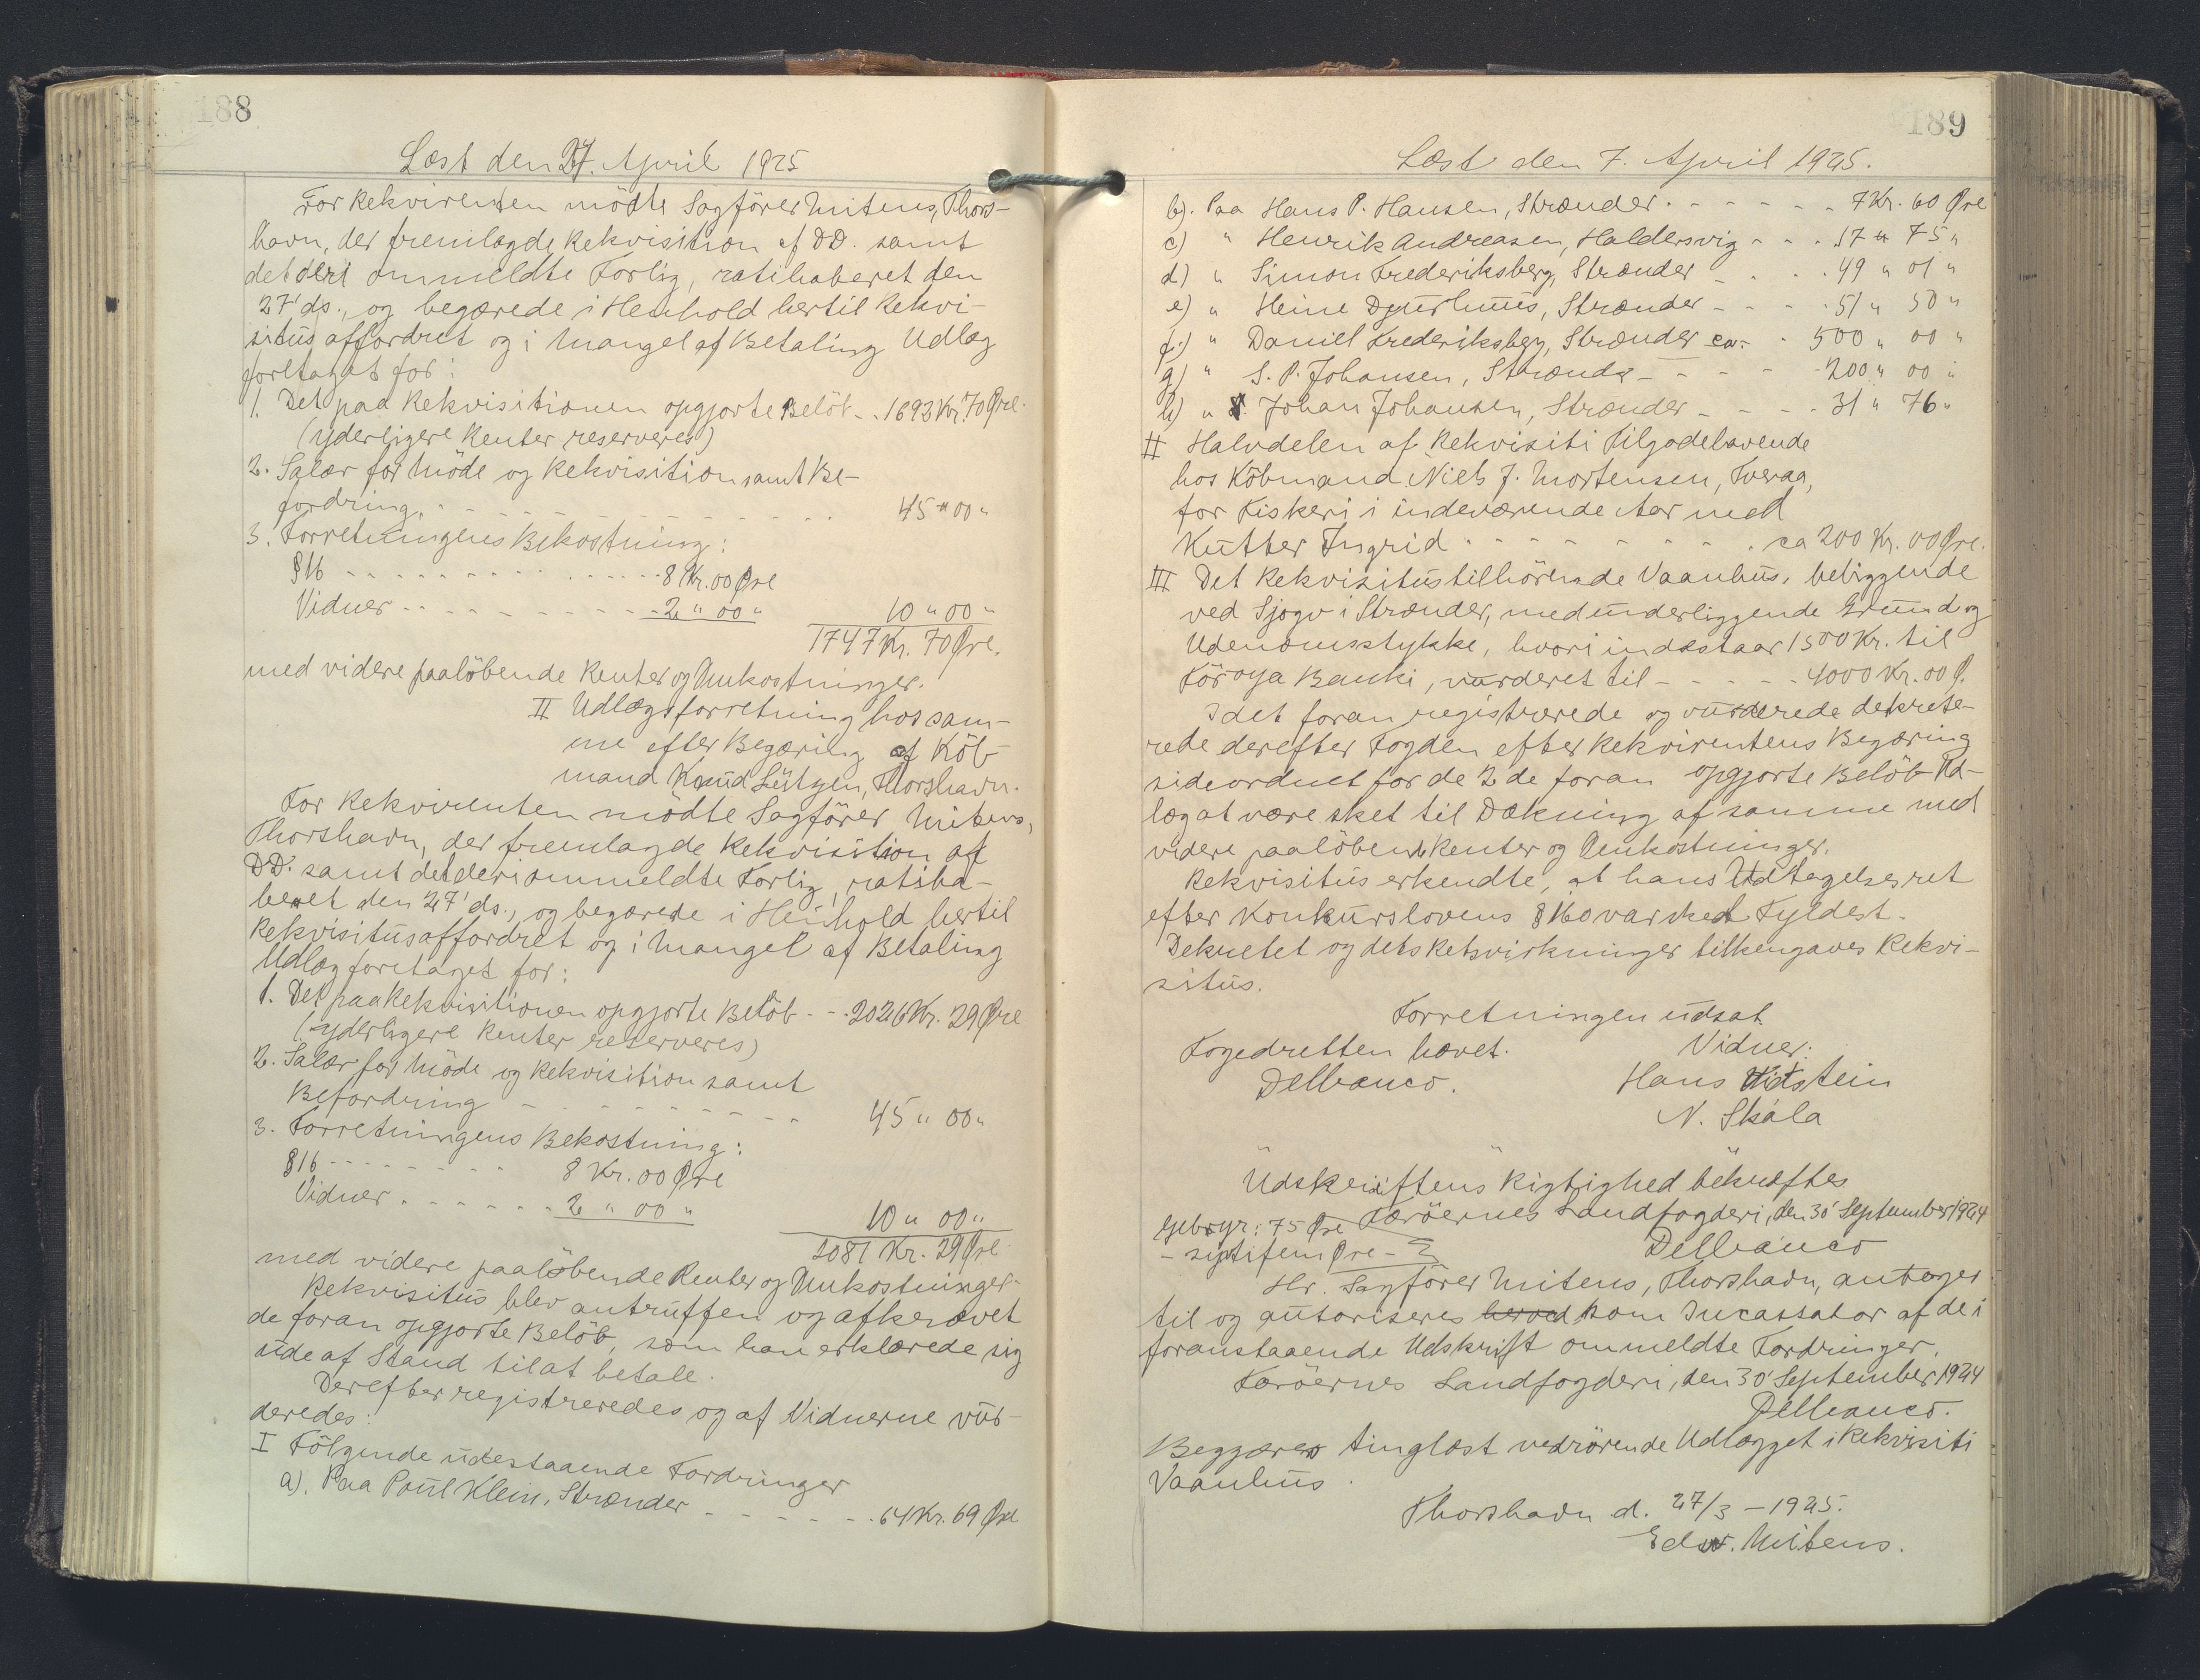 188
Læst den 7. April 1925
For Rekvirenten mödte Sagförer Mitens, Thors-
havn, der fremlagde Rekvisition af DD. samt
det deri ommeldte Forlig, ratihaberet den
27' ds., og begærede i Henhold hertil Rekvi-
situs affordret og i Mangel af Betaling Udlæg
foretaget for:
1. Det paa Rekvisitionen opgjorte Belöb - - 1693 Kr. 70 Øre.
(yderligere Renter reserveres)
2. Salær for Möde og Rekvisition samt Be-
fordring. - - - - - - - - - - 45 " 00 "
3. Forretningens Bekostning:
§16 - - - - - - - - - - 8 Kr. 00 Øre
Vidner - - - - - - - - - - 2 " 00 " 10 " 00 "
1747 Kr. 70 Øre.
med videre paalöbende Renter og Omkostninger.
II Udlægsforretning hos sam-
me efter Begæring af Köb-
mand Knud Lützen, Thorshavn.
For Rekvirenten mödte Sagförer Mitens,
Thorshavn, der fremlagde Rekvisition af
DD. samt det deri ommeldte Forlig, ratiha-
beret den 27' ds., og begærede i Henhold hertil
Rekvisitus affordret og i Mangel af Betaling
Udlæg foretaget for:
1. Det paa Rekvisitionen opgjorte Belöb - - 2026 Kr. 29 Øre
(yderligere Renter reserveres)
2. Salær for Möde og Rekvisition samt
Befordring - - - - - - - - - 45 " 00 "
3. Forretningens Bekostning:
§16 - - - - - - - - 8 Kr. 00 Øre
Vidner - - - - - - - 2 " 00 "
10 " 00 "
2081 Kr. 29 Øre
med videre paalöbende Renter og Omkostninger.
Rekvisitus blev antruffen og afkrævet
de foran opgjorte Belöb, som han erklærede sig
ude af Stand til at betale.
Derefter registreredes og af Vidnerne vur-
deredes:
I Fölgende udestaaende Fordringer
a). Paa Poul Klein, Strænder - - - - - - 64 Kr. 69 Øre
189
Læst den 7. April 1925.
b). Paa Hans P. Hansen, Strænder - - - - - - 7 Kr. 60 Øre
c) " Henrik Andreasen, Haldersvig - - - 17 " 75 "
d) " Simon Frederiksberg, Strænder - - - 49 " 01 "
e) " Heine Djurhuus, Strænder - - - - 51 " 50 "
f.) " Daniel Frederiksberg, Strænder ca. - 500 " 00 "
g) " S. P. Johansen, Strænder - - - - - 200 " 00 "
h) " Johan Johansen, Strænder - - - - 31 " 76 "
II Halvdelen af Rekvisiti Tilgodehavende
hos Köbmand Niels J. Mortensen, Tveraa,
for Fiskeri i indeværende Aar med
Kutter Ingrid - - - - - - - - ca 200 Kr. 00 Øre.
III Det Rekvisitus tilhörende Vaanhus, beliggende
ved Sjógv i Strænder, med underliggende Grund og
Udenomsstykke, hvori indestaar 1500 Kr. til
Föroya Banki, vurderet til - - - - - 4000 Kr. 00 Ø.
I det foran registrerede og vurderede dekrete-
rede derefter Fogden efter Rekvirentens Begæring
sideordnet for de 2 de foran opgjorte Belöb Ud-
læg at være sket til Dækning af samme med
videre paalöbende Renter og Omkostninger.
Rekvisitus erkendte, at hans Udtagelsesret
efter Konkurslovens § 160 var sket Fyldest.
Dekretet og dets Retsvirkninger tilkengaves Rekvi-
situs.
Forretningen udsat
Fogedretten hævet. Vidner:
Dellbanco. Hans Vidstein
N. Skála
Udskriftens Rigtighed bekræftes
Gebyr: 75 Øre Færöernes Landfogderi, den 30' September 1924
- syttifem Øre - Dellbanco
Hr. Sagförer Mitens, Thorshavn, antages
til og autoriseres herved som Incassator af de i
foranstaaende Udskrift ommeldte Fordringer.
Færöernes Landfogderi, den 30' September 1924
Dellbanco.
Begæres tinglæst vedrörende Udlægget i Rekvisiti
Vaanhus.
Thorshavn d. 27/3 - 1925.
Edw. Mitens.